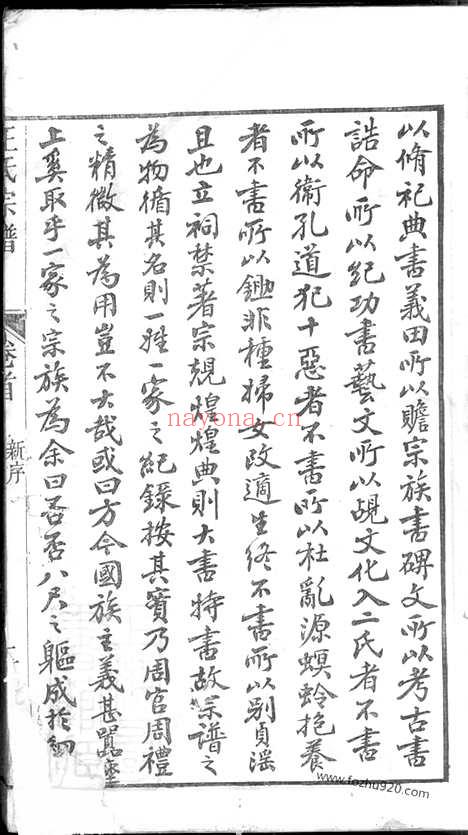 以脩祀典書義田所以贍宗族書碑文所以考古書
誥命所以紀功書藝文所以覘文化入二氏者不書
所以衛孔道犯十惡者不書所以杜亂源螟蛉抱養
者不書所以鋤非種婦女改適生終不書所以別貞淫
且也立祠禁著宗規煌煌典則大書特書故宗譜之
為物循其名則一姓一家之紀錄按其實乃周官周禮
之精微其為用豈不大哉或曰方今國族主義甚囂塵
上奚取乎一家之宗族為余曰否否八尺之軀成於細
王氏宗譜
卷首
新序
nayona.cn
www.fozhu920.com